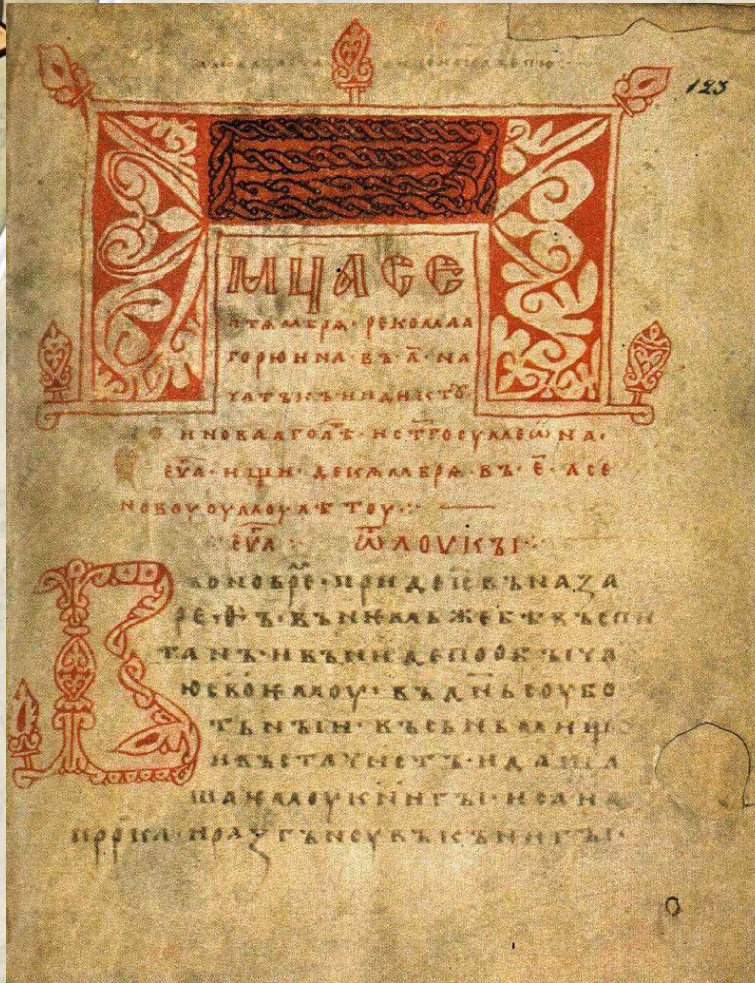 123
МЦАСЕ
ПТѦМБРѦ· РЕКОМАА
ГОРЮИНА· ВЪ· А҃· НА
ЧАТЪКЪ ИНДИКТО҃
И НОВААГО ЛѢ· И СТ҃ГО СУМЕѠНА·
ЕУ҃А· ИЩИ· ДЕКѦМБРѦ· ВЪ· Е҃· А СЕ
НОВОУОУМОУ ЛѢТОУ:·
ЕУ҃А :· Ѿ ЛОУКЪІ:·
ВОНО ВРЕ҃· ПРИДЕ ІС҃ ВЪ НАЗА
РЕ·Ѳ·Ъ· ВЪ НЕМЬЖЕ БѢ ВЪСПИ
ТАНЪ· И ВЪНИДЕ ПО ОБЪІЧА
Ю СВОЕМОУ· ВЪ ДН҃Ь СОУБО
ТЬНЪІИ· ВЪ СЪНЬМИЩЕ
И ВЪСТА ЧИСТЪ· И ДАША
ША ЕМОУ КНИГЪІ· ИСАИ
ПРР҃КА· И РАЗГЪНОУВЪ КЪНИГЪІ·